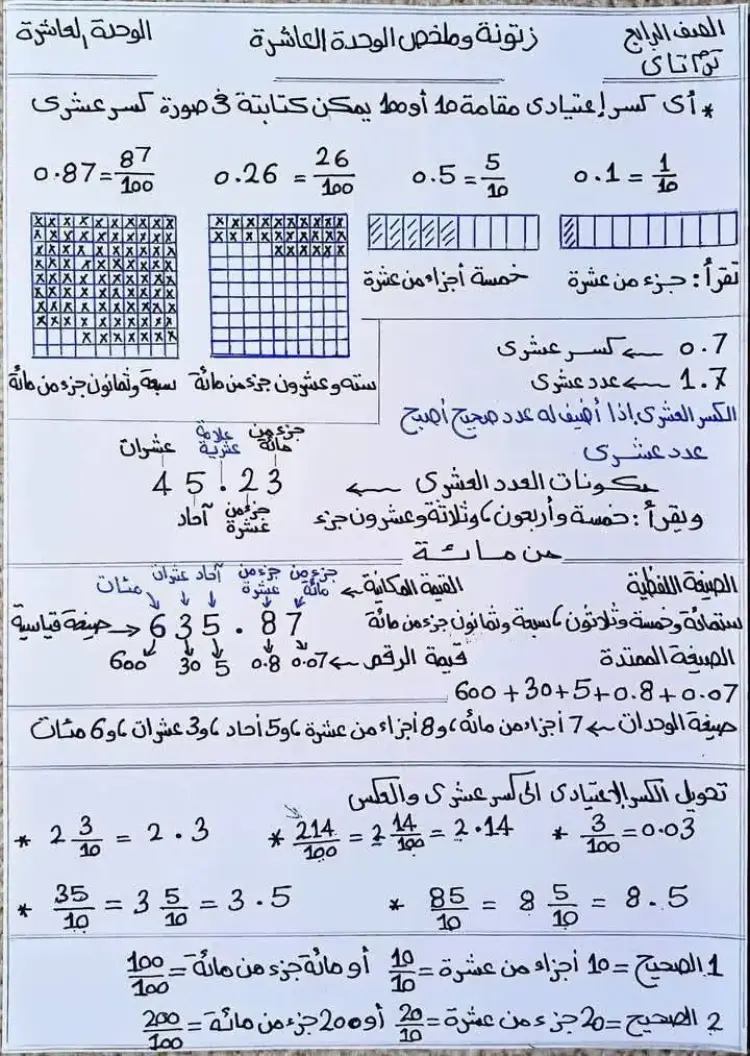 الصف الرابع
ترم تانى
زتونة وملخص الوحدة العاشرة
الوحدة العاشرة
* أى كسر إعتيادى مقامة 10 أو 100 يمكن كتابتة فى صورة كسر عشرى
0.1 = 1/10
0.5 = 5/10
0.26 = 26/100
0.87 = 87/100
تقرأ: جزء من عشرة
خمسة أجزاء من عشرة
سته وعشرون جزء من مائة
سبعة وثمانون جزء من مائة
0.7 ← كسر عشرى
1.7 ← عدد عشرى
الكسر العشرى إذا أضيف له عدد صحيح أصبح
عدد عشرى
مكونات العدد العشرى ←
عشرات علامة عشرية جزء من مائة
45.23
آحاد جزء من عشرة
وتقرأ: خمسة وأربعون، وثلاثة وعشرون جزء
من مائة
الصيغة اللفظية
ستمائة وخمسة وثلاثون، سبعة وثمانون جزء من مائة
القيمة المكانية ← جزء من مائة جزء من عشرة آحاد عشرات مئات
صيغة قياسية → 635.87
قيمة الرقم ← 0.07 0.8 5 30 600
الصيغة الممتدة
600+30+5+0.8+0.07
صيغة الوحدات ← 7 أجزاء من مائة، و8 أجزاء من عشرة، و5 أحاد، و3 عشرات، و6 مئات
تحويل الكسر الإعتيادى الى كسر عشرى والعكس
* 3/100 = 0.03
* 214/100 = 2 14/100 = 2.14
* 2 3/10 = 2.3
* 85/10 = 8 5/10 = 8.5
* 35/10 = 3 5/10 = 3.5
1 الصحيح = 10 أجزاء من عشرة = 10/10 أو مائة جزء من مائة = 100/100
2 الصحيح = 20 جزء من عشرة = 20/10 أو 200 جزء من مائة = 200/100